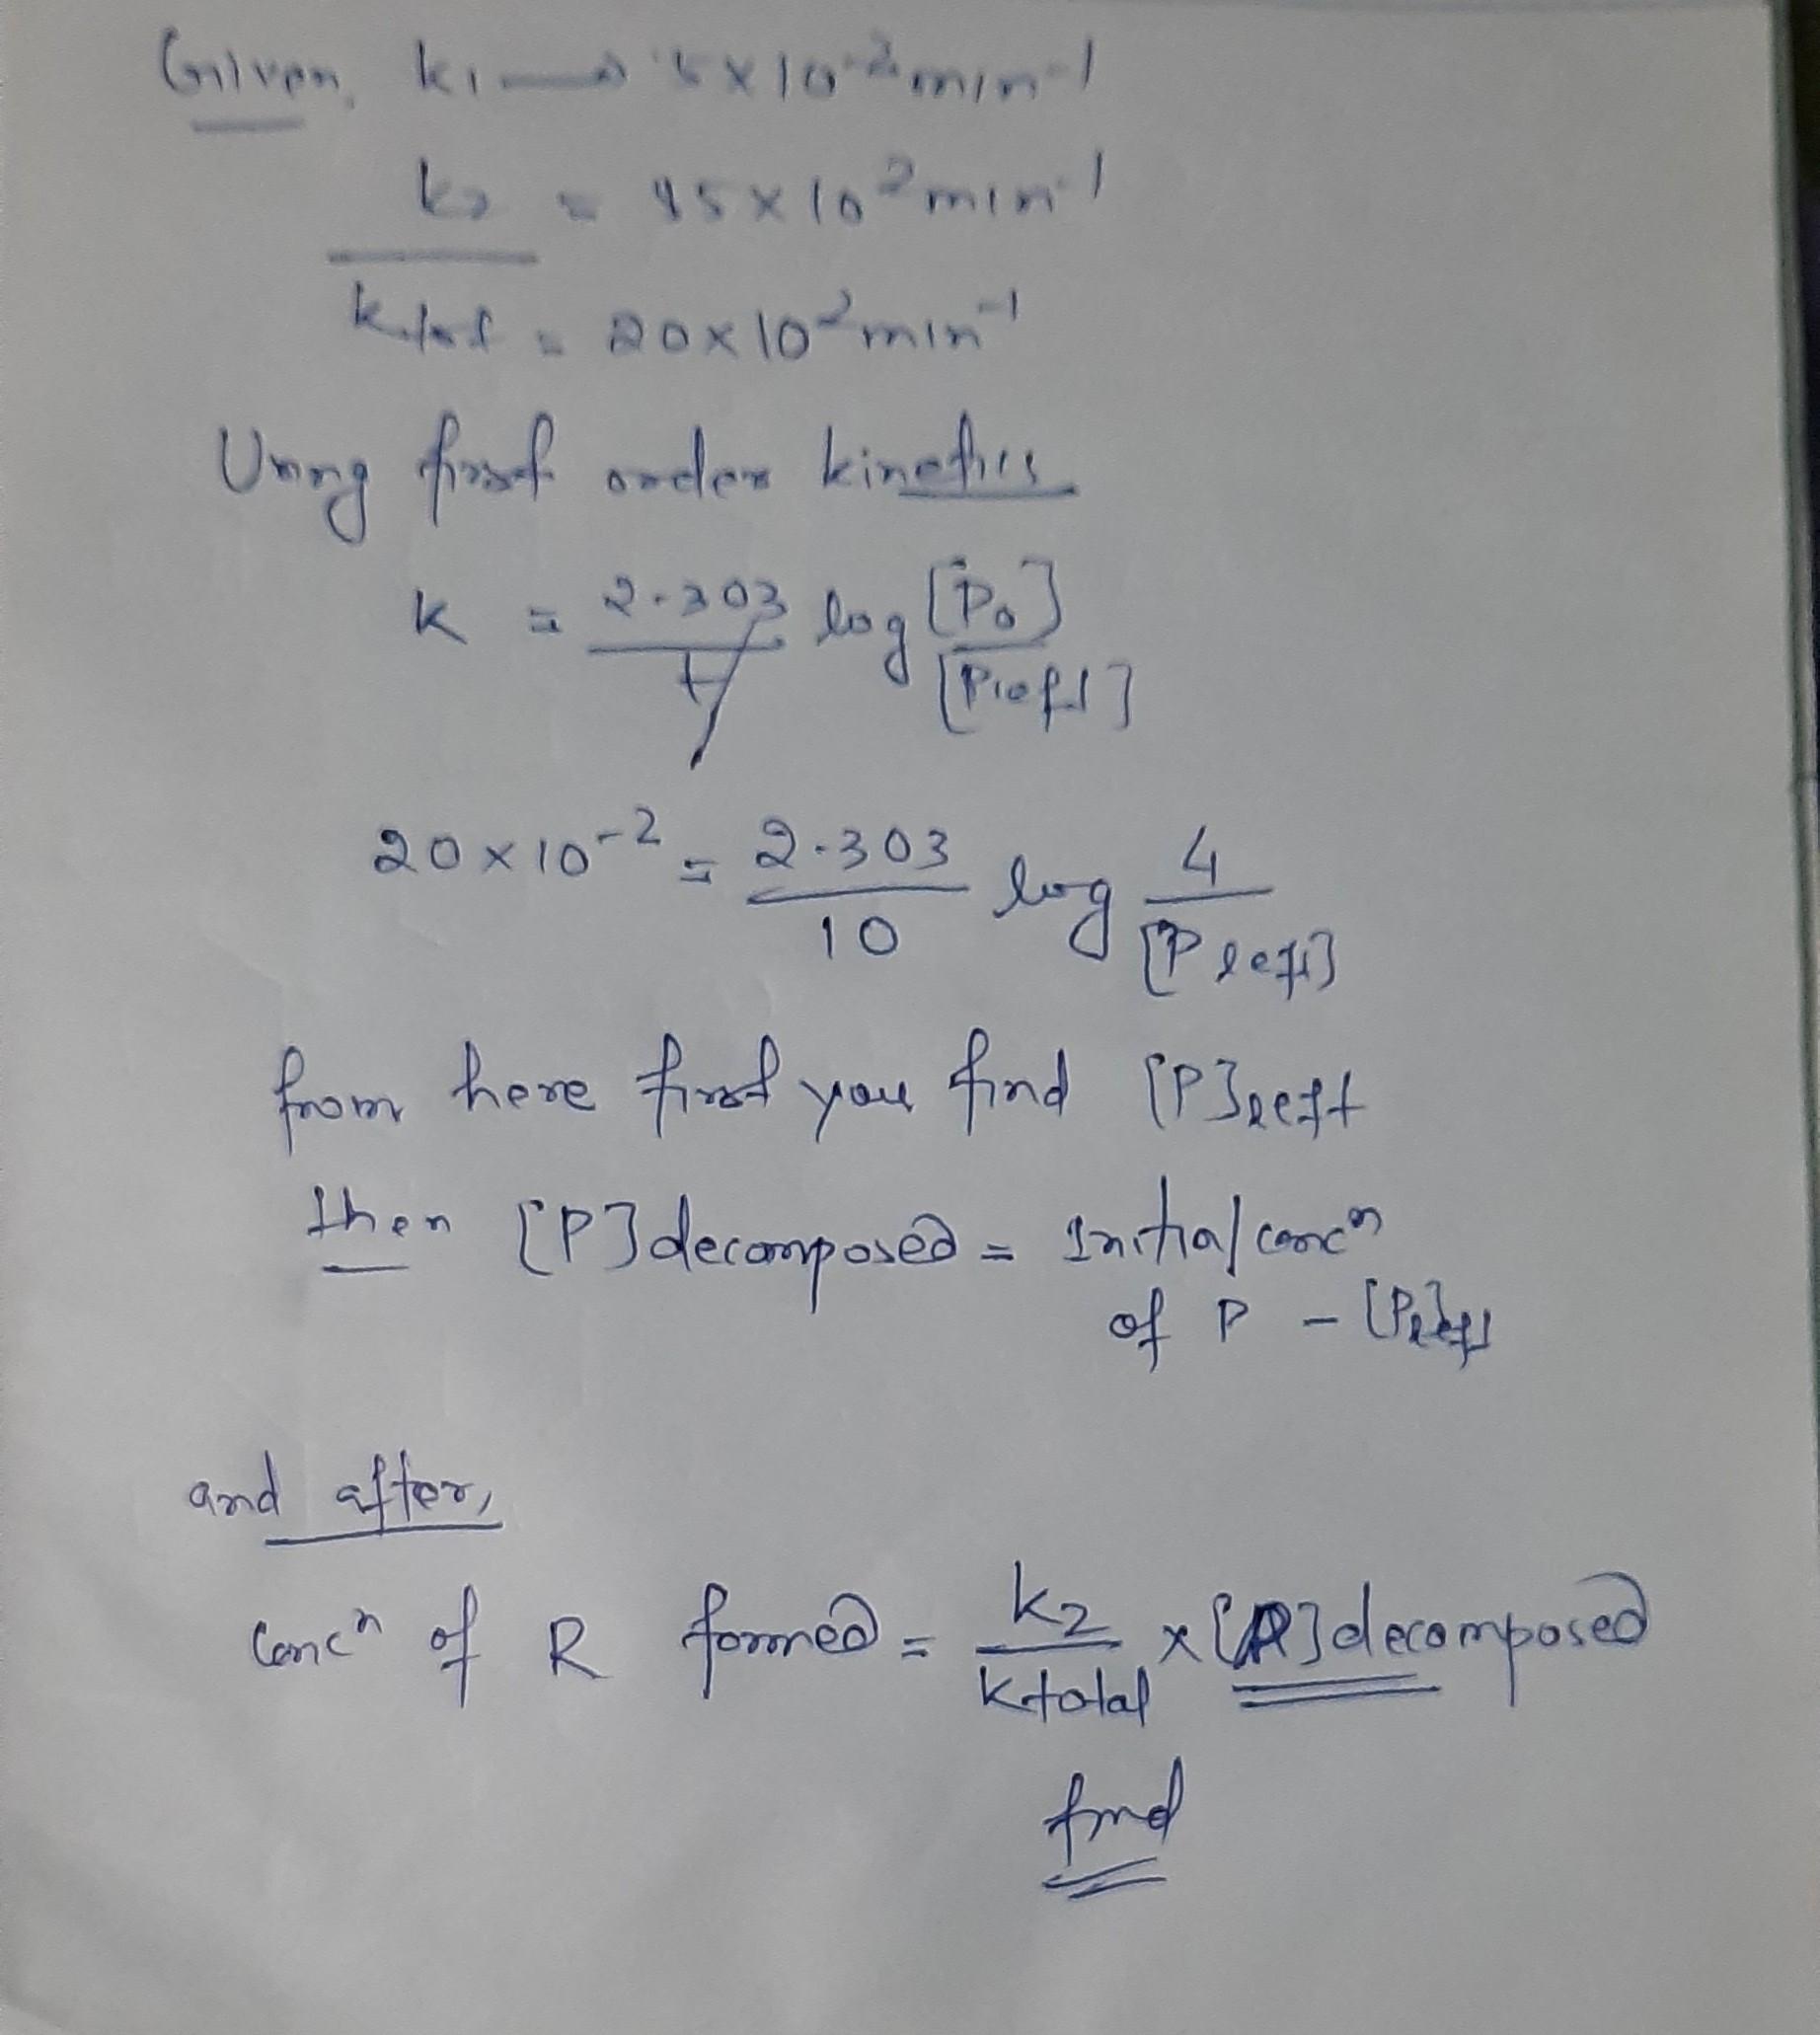 Given, k1 → 5 × 10-2 min-1
k2 = 15 × 10-2 min-1
ktot = 20 × 10-2 min-1
Using first order kinetics
K = 2.303/t log [P0]/[Pleft]
20 × 10-2 = 2.303/10 log 4/[Pleft]
from here first you find [P]left
then [P] decomposed = Initial concn
of P - [P]left
and after,
concn of R formed = K2/Ktotal × [P] decomposed
find